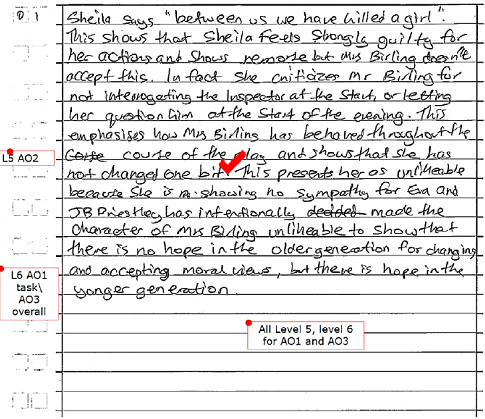 01
Sheila says "between us we have killed a girl".
This shows that Sheila feels strongly guilty for
her actions and shows remorse but Mrs Birling doesn't
accept this. In fact she criticizes Mr Birling for
not interrogating the Inspector at the start, or letting
her question him at the start of the evening. This
emphasises how Mrs Birling has behaved throughout the
course of the play and shows that she has
not changed one bit. This presents her as unlikeable
because she is showing no sympathy for Eva and
JB Priestley has intentionally decided made the
character of Mrs Birling unlikeable to show that
there is no hope in the older generation for changing
and accepting moral views, but there is hope in the
yonger generation.
L5 AO2
L6 AO1
task\
AO3
overall
All Level 5, level 6
for AO1 and AO3